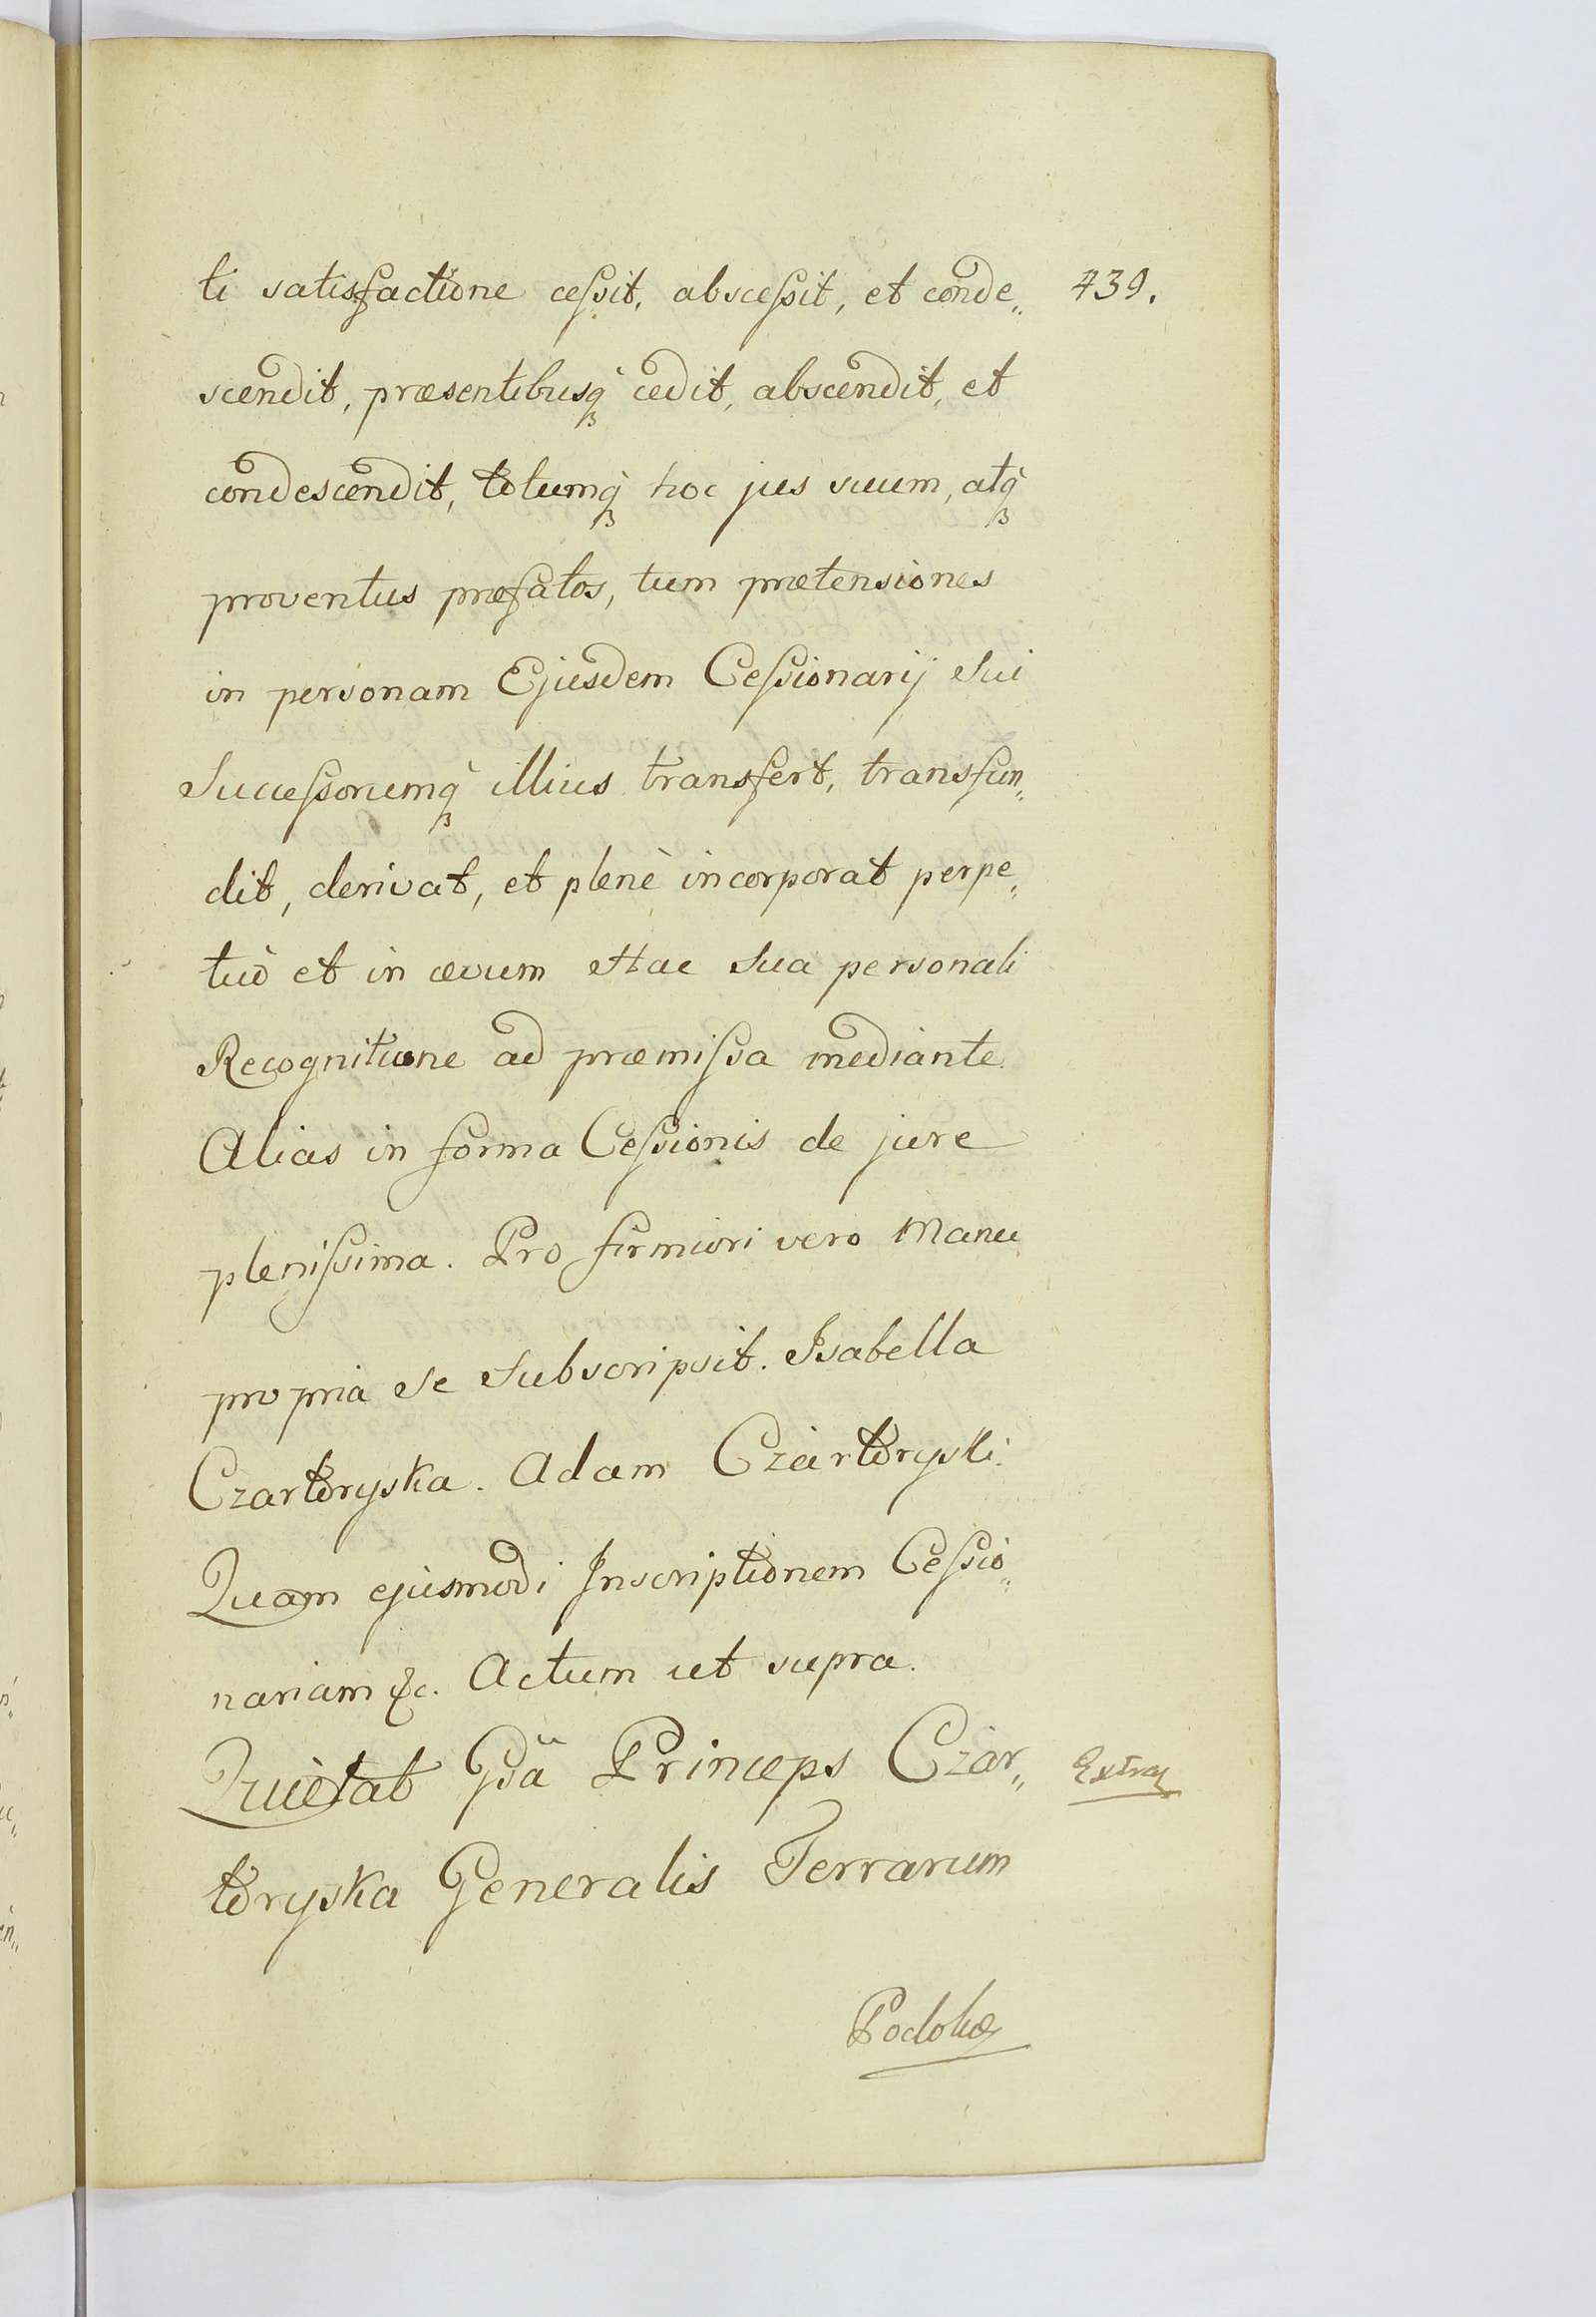 ti satisfactione cessit, abscessit, et conde„
439.
scendit, præsentibusq̀ cedit, abscendit, et
condescendit, totumq̀ hoc jus suum, atq̀
proventus præfatos, tum prætensiones
in personam Ejusdem Cessionarij Sui
Successorumq̀ illius transfert, transfun„
dit, derivat, et plenè incorporat perpe„
tuò et in ævum Hac Sua personali
Recognitione ad præmissa mediante
Alias in forma Cessionis de jure
plenissima. Pro firmiori vero Manu
propria Se Subscripsit. Isabella
Czartoryska. Adam Czartoryski.
Quam ejusmodi Inscriptionem Cessio„
nariam &c. Actum ut supra.
Quietat Gsa Princeps Czar„
toryska Generalis Terrarum
Podoliæ